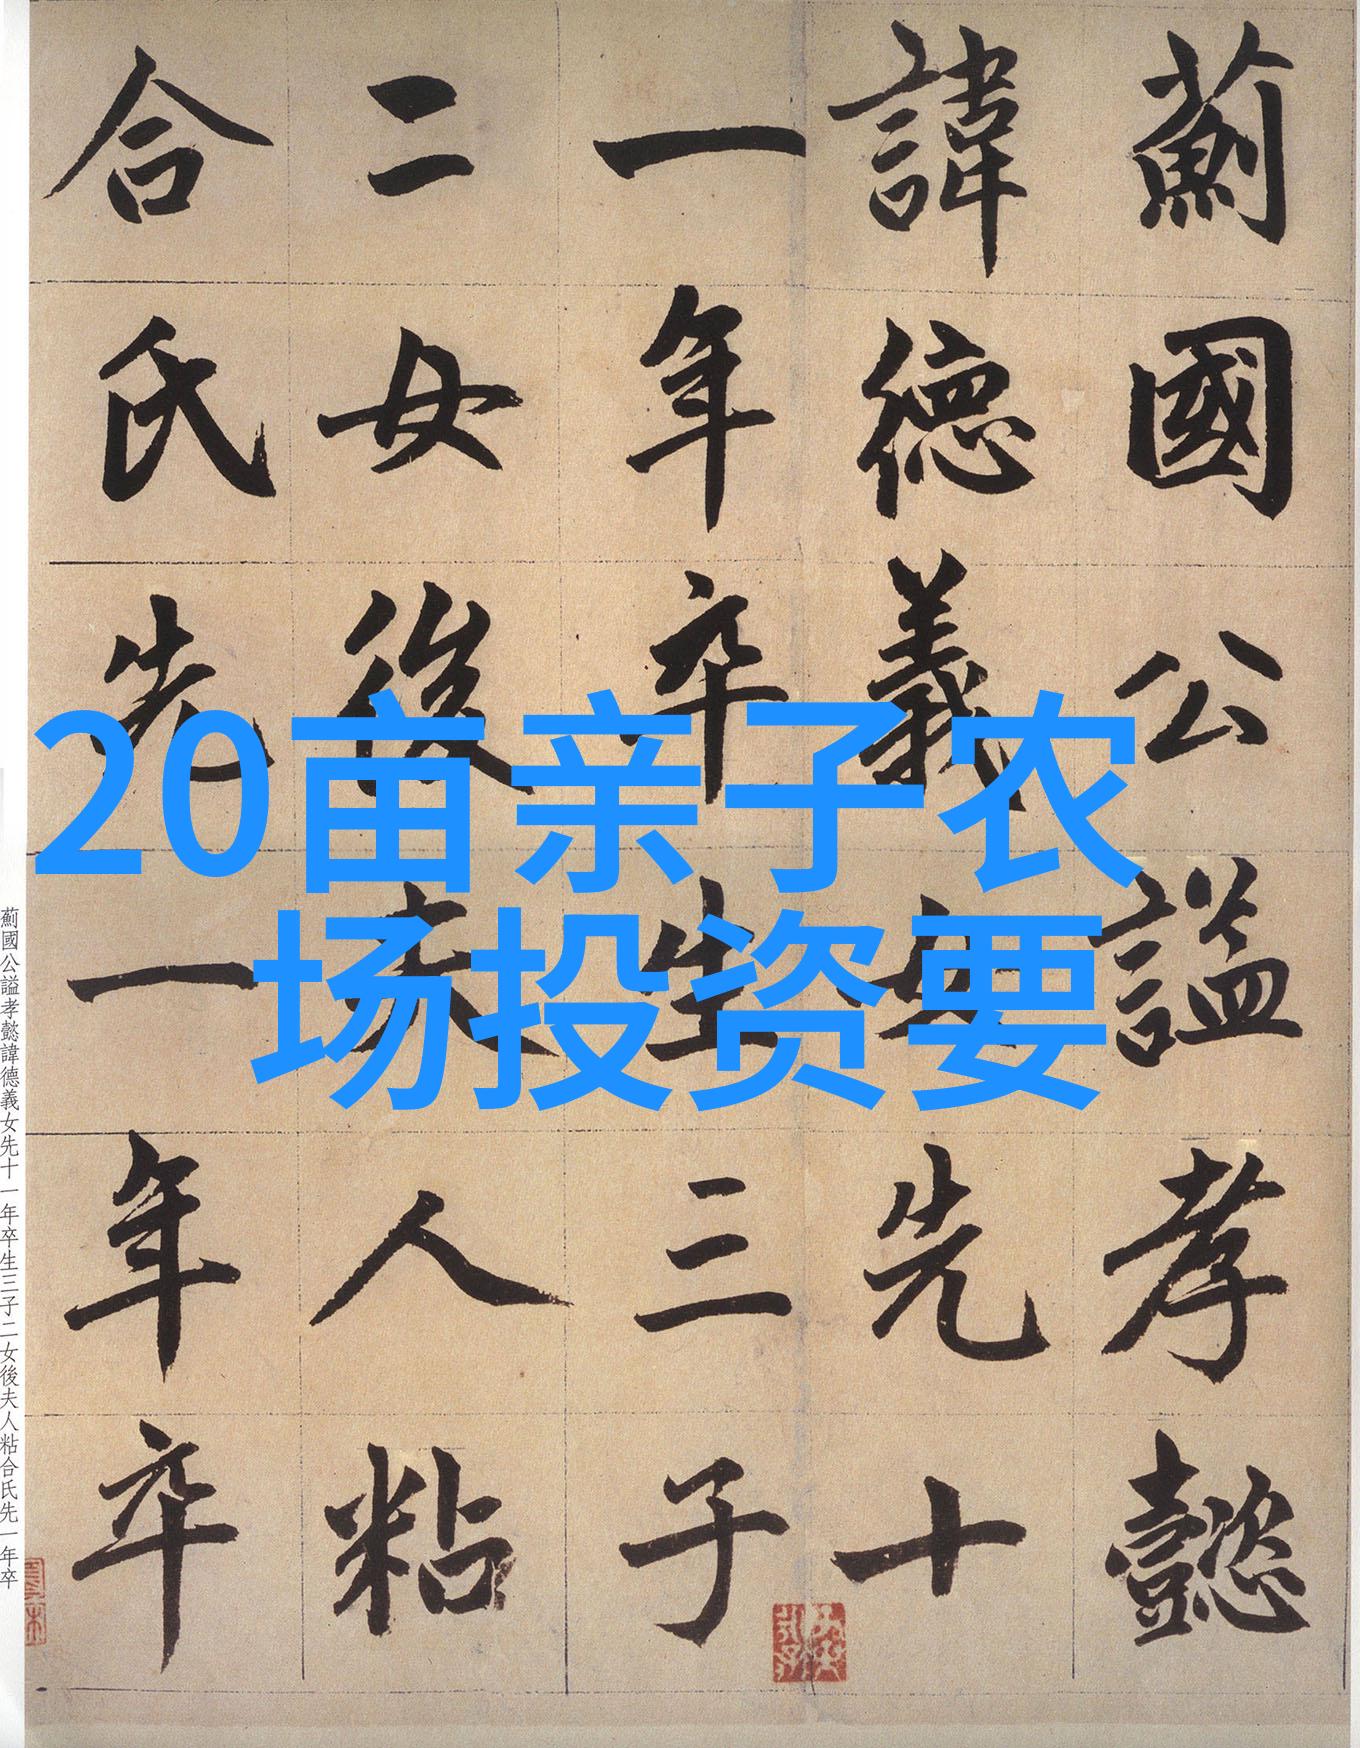 薊國公謚孝懿
諱德義女先十
一年卒生三子
二女後夫人粘
合氏先一年卒
20亩亲子农
场投资要
薊國公謚孝懿諱德義女先十一年卒生三子二女後夫人粘合氏先一年卒